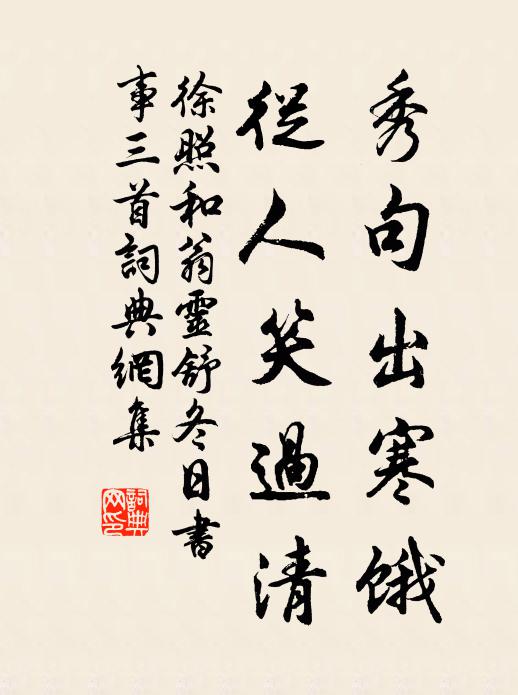 秀句出寒饿
從人笑過清
徐照和翁靈舒冬日書
事三首詞典網集
詞典网印